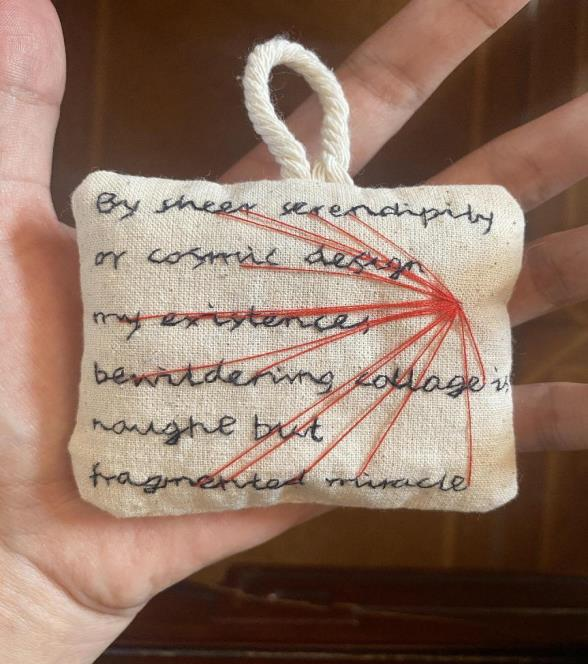 By sheer serendipity
or cosmic design
my existence,
bewildering collage is
naught but
fragmented miracle